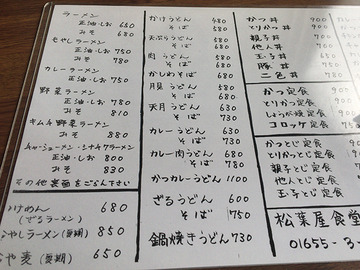 ラーメン
正油・しお 650
みそ 680
もやしラーメン
正油・しお 750
みそ 780
カレーラーメン
正油・しお 750
野菜ラーメン
正油・しお 780
みそ 830
キムチ野菜ラーメン
みそ 880
チャーシューメン・シナチクラーメン
正油・しお 800
みそ 830
その他裏面をごらん下さい
つけめん 680
(ざるラーメン)
ひやしラーメン(夏期) 850
ひや麦(夏期) 650
かけうどん 580
そば 580
天ぷらうどん
そば
肉うどん 580
そば 580
かしわそば 580
月見うどん 580
そば 580
天月うどん 630
そば 730
カレーうどん 630
そば 730
カレー肉うどん 680
そば 780
かつカレーうどん 1100
ざるうどん 650
そば 750
鍋焼きうどん 730
かつ丼 900
とりかつ丼 900
親子丼
他人丼
玉子丼
豚丼
二色丼
かつ定食
とりかつ定食
しょうが焼定食
コロッケ定食
かつとじ定食
とりかつとじ定食
親子とじ定食
他人とじ定食
玉子とじ定食
松葉屋食堂
01655-3-